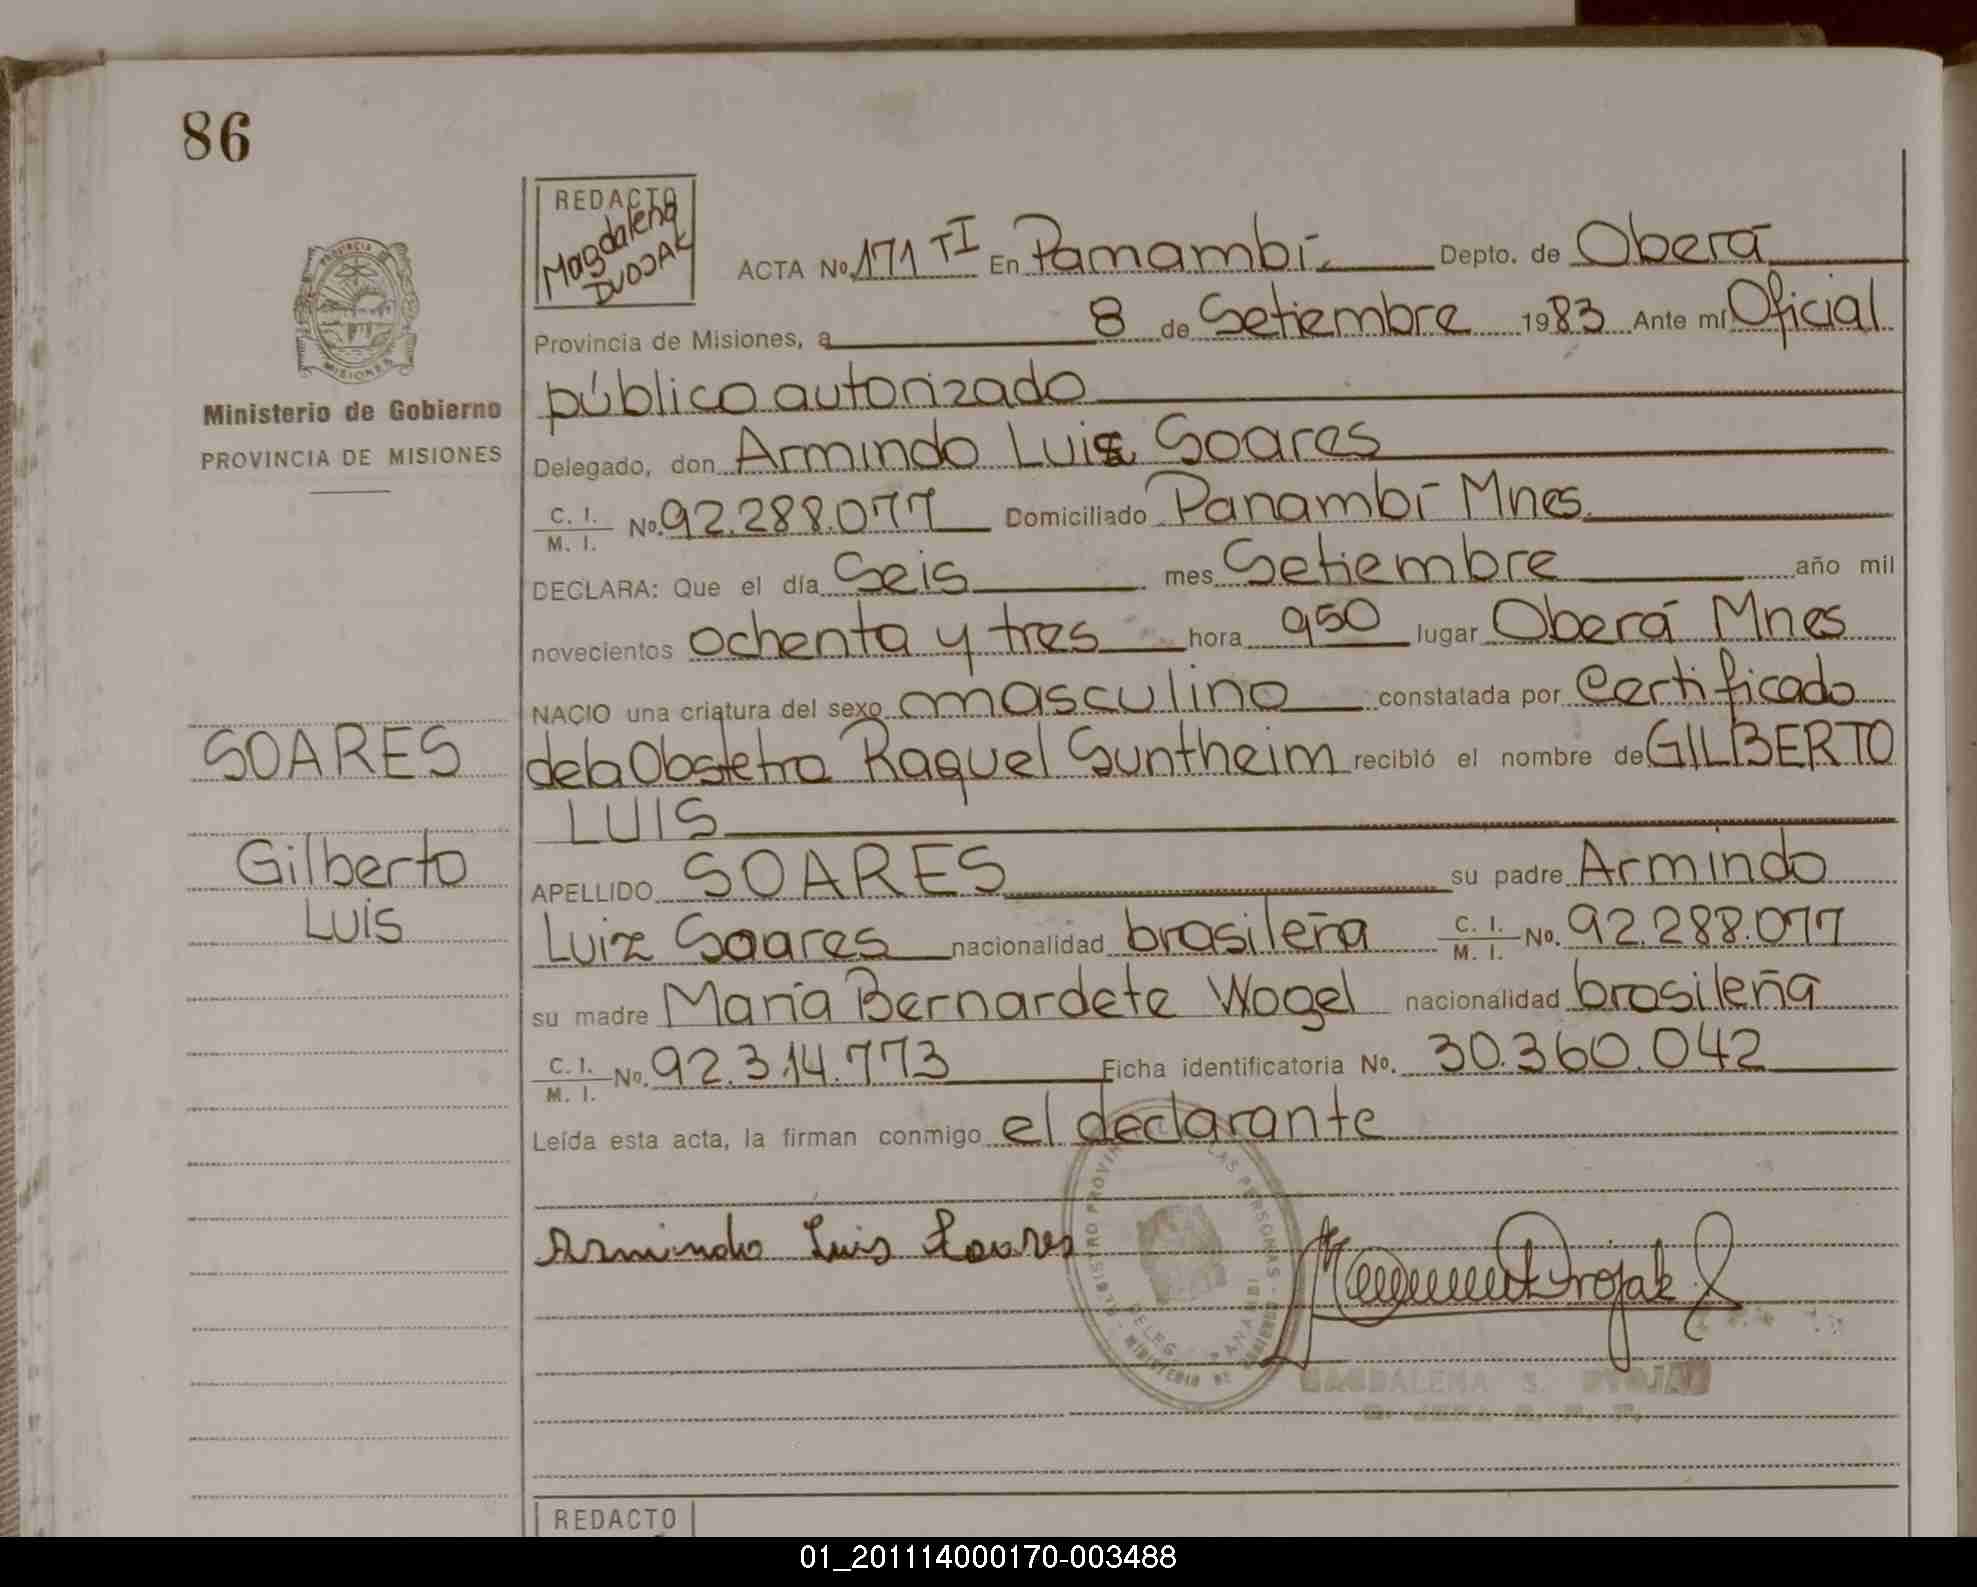 86
REDACTO
Magdalena
DVOJAK
ACTA No. 171 TI En Panambí Depto. de Oberá
Provincia de Misiones, a 8 de Setiembre 1983 Ante mí Oficial
público autorizado
Delegado, don Armindo Luiz Soares
C. I. / M. I. No. 92.288.077 Domiciliado Panambí Mnes
DECLARA: Que el día Seis mes Setiembre año mil
novecientos ochenta y tres hora 950 lugar Oberá Mnes
NACIO una criatura del sexo masculino constatada por Certificado
de la Obstetra Raquel Suntheim recibió el nombre de GILBERTO
LUIS
APELLIDO SOARES su padre Armindo
Luiz Soares nacionalidad brasileña C. I. / M. I. No. 92.288.077
su madre María Bernardete Wogel nacionalidad brasileña
C. I. / M. I. No. 92.314.773 Ficha identificatoria No. 30.360.042
Leída esta acta, la firman conmigo el declarante
Armindo Luis Soares
Dvojak
MAGDALENA S. DVOJAK
PROVINCIA DE
MISIONES
Ministerio de Gobierno
PROVINCIA DE MISIONES
SOARES
Gilberto
Luis
REDACTO
01_201114000170-003488